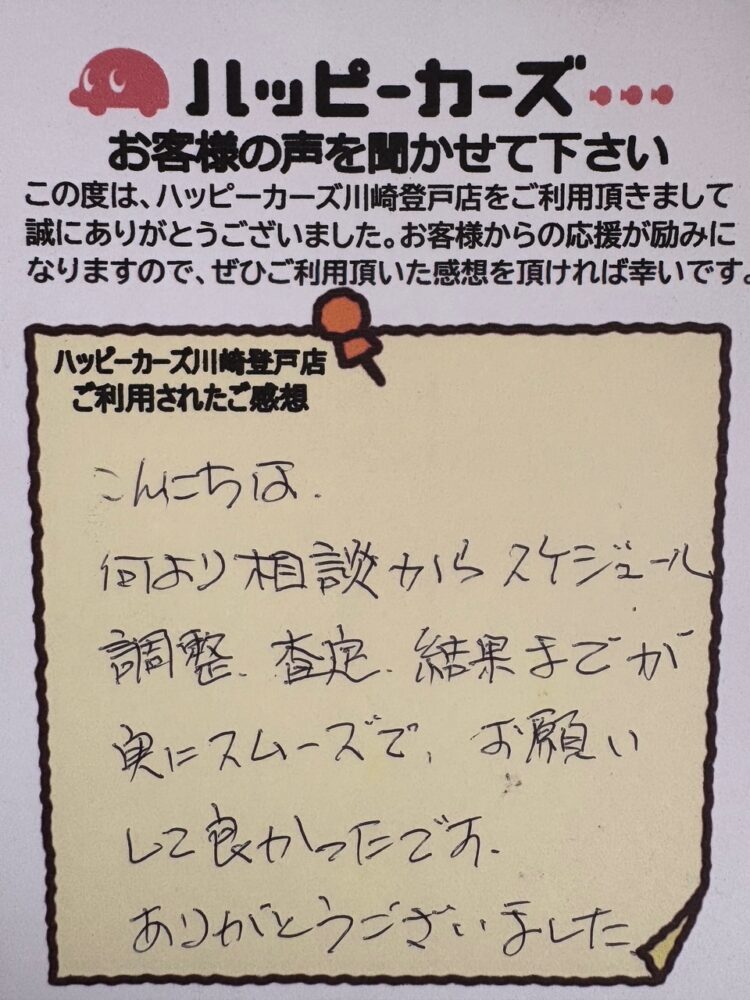 ハッピーカーズ
お客様の声を聞かせて下さい
この度は、ハッピーカーズ川崎登戸店をご利用頂きまして
誠にありがとうございました。お客様からの応援が励みに
なりますので、ぜひご利用頂いた感想を頂ければ幸いです。
ハッピーカーズ川崎登戸店
ご利用されたご感想
こんにちは.
何より相談からスケジュール
調整、査定、結果までが
実にスムーズで、お願い
して良かったです.
ありがとうございました